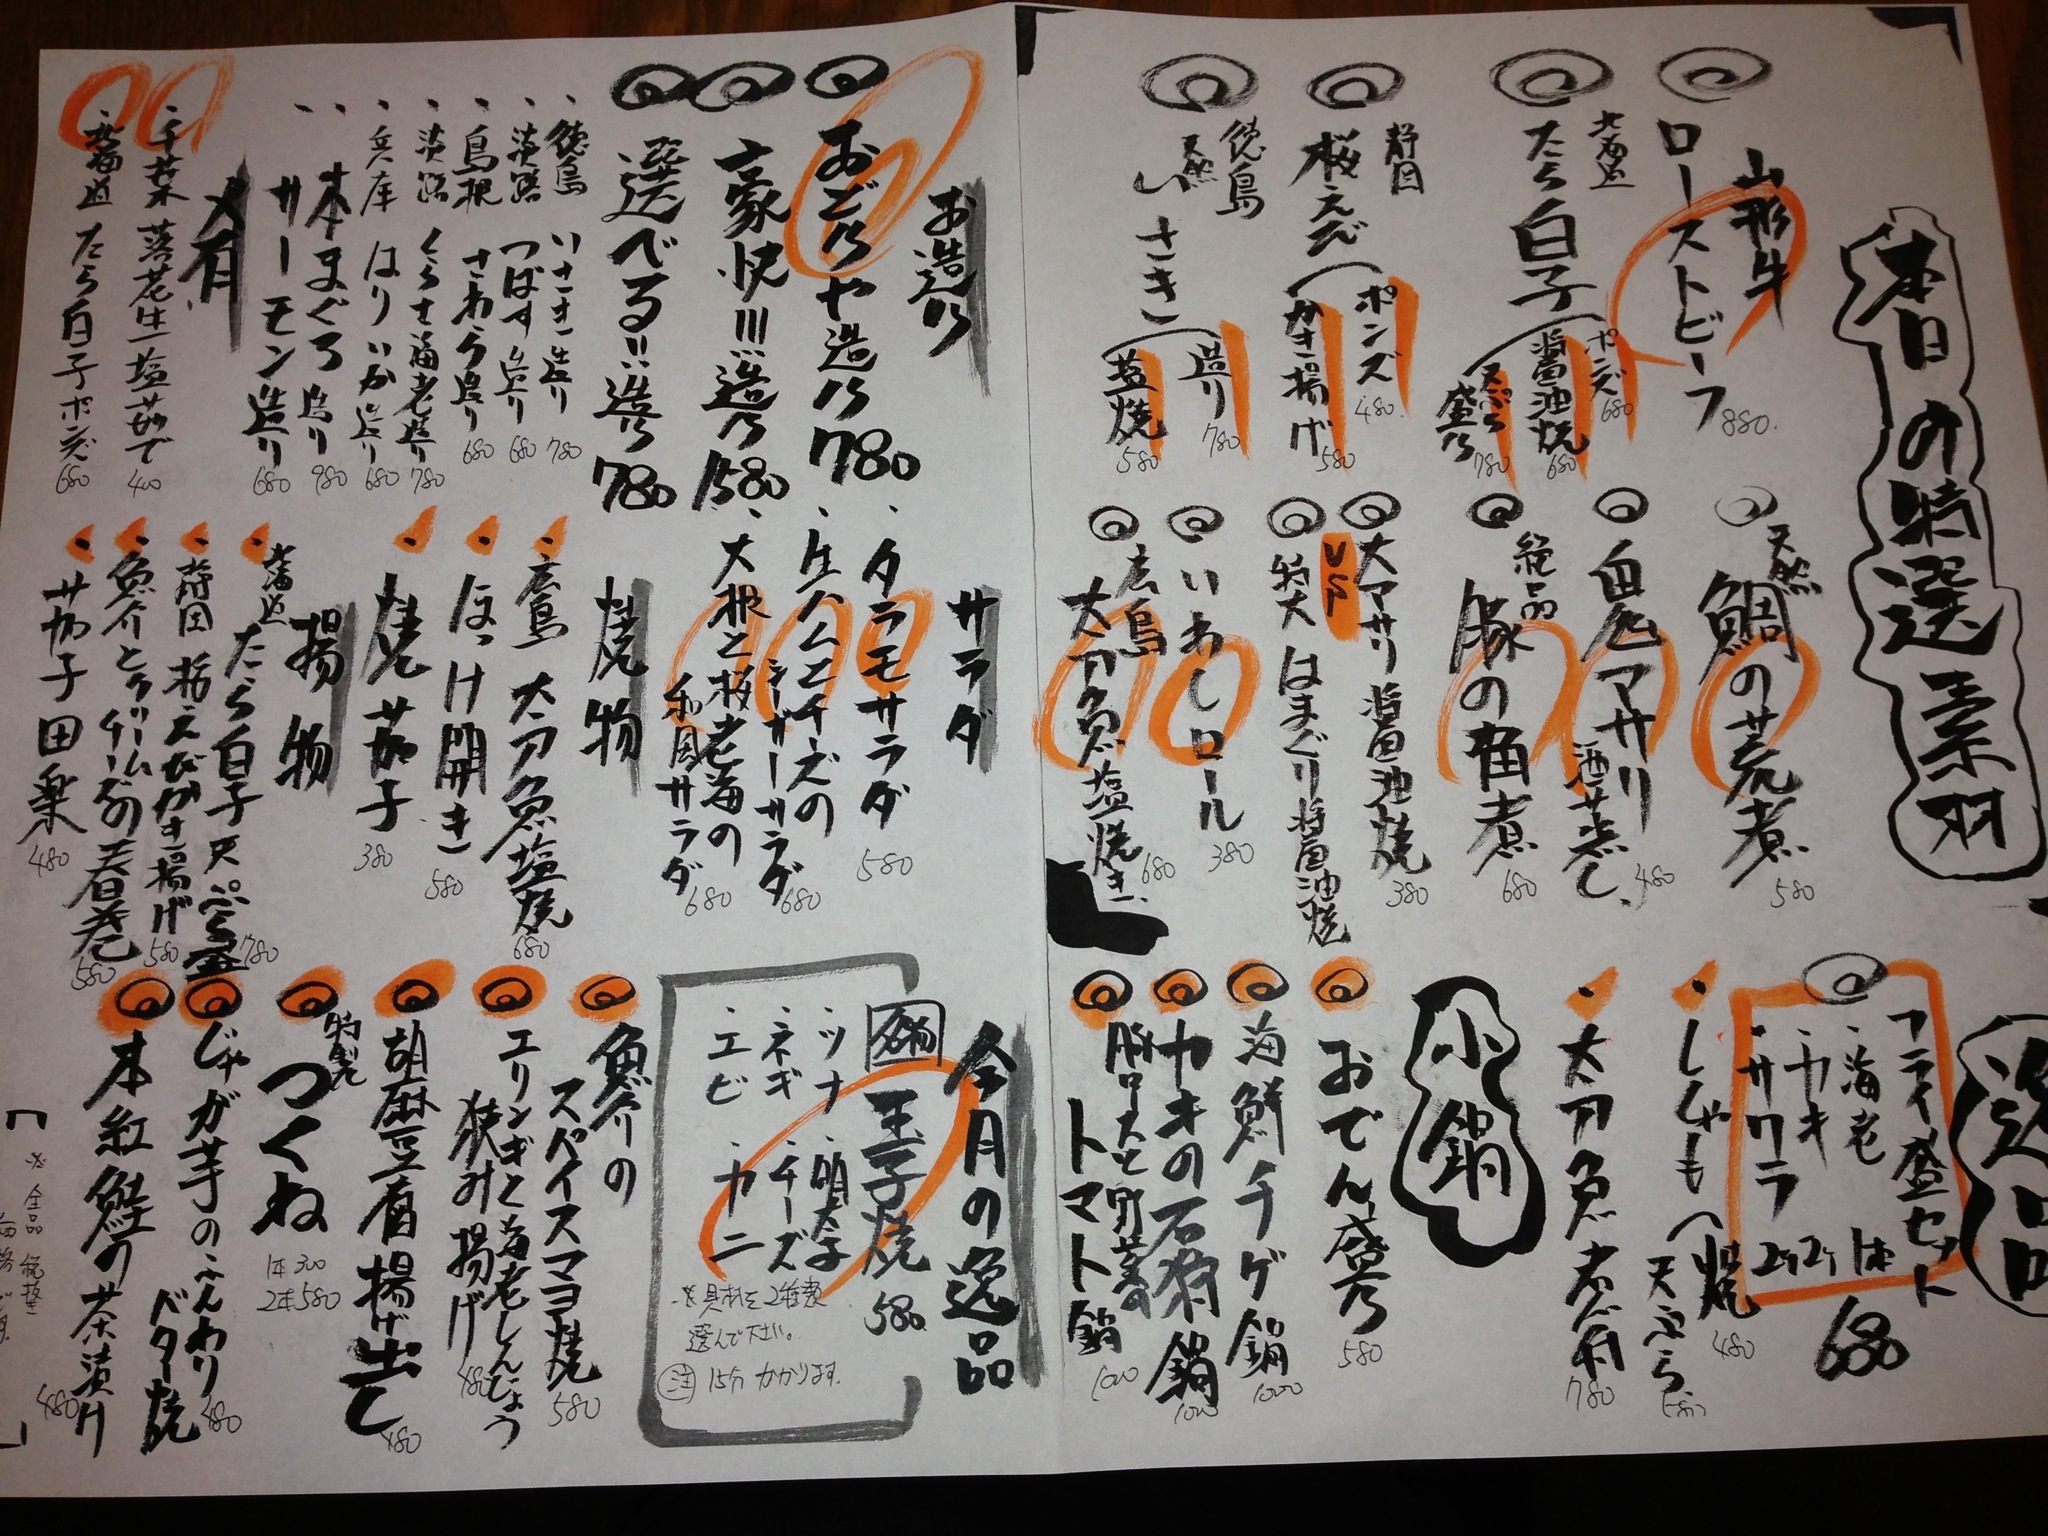 本日の特選素材
山形牛
ローストビーフ 880.
北海道
たら白子
ポンズ 680
醤油焼 680
天ぷら盛り 780
静岡
桜えび
ポンズ 480.
かき揚げ 580
徳島
天然
いさき
造り 780
塩焼 580
天然
鯛の荒煮 580
鬼アサリ酒蒸し 480
絶品
豚の角煮 680
大アサリ醤油焼 380
特大はまぐり醤油焼
いわしロール 380
広島
太刀魚塩焼き 680
逸品
フライ盛セット 680
・海老 1本
・カキ 2ケ
・サワラ 2ケ
・ししゃも
焼 480
天ぷら 580
・太刀魚煮付 780
小鍋
おでん盛り 580
海鮮チゲ鍋 1000
カキの石狩鍋 1000
豚ロースと野菜の
トマト鍋 1000
お造り
おごりや造り 780
豪快!!!造り 1580
選べる!!造り 780
・徳島 いさき造り 780
・淡路 つばす造り 680
・島根 さわら造り 680
・淡路 くらさ海老造り 780
・兵庫 はりいか造り 680
・本まぐろ造り 980
・サーモン造り 680
・千葉 落花生塩茹で 400
・北海道 たら白子ポンズ 680
サラダ
・タラモサラダ 580
・生ハムとチーズの
シーザーサラダ 680
・大根と桜海老の
和風サラダ 680
焼物
・広島 太刀魚塩焼 680
・ほっけ開き 580
・焼茄子 380
揚物
・北海道 たら白子天ぷら 780
・静岡 桜えびかき揚げ 580
・魚介とクリームチーズの春巻 580
・茄子田楽 480
今月の逸品
玉子焼 580
・ツナ ・明太子
・ネギ ・チーズ
・エビ ・カニ
※具材を2種類
選んで下さい。
注 15分かかります.
魚介の
スパイスマヨ焼 580
エリンギと海老しんじょう
挟み揚げ 480
胡麻豆腐揚げ出し 480
特製
つくね
1本 300
2本 580
じゃが芋のふんわり
バター焼 480
本紅鮭の茶漬け 480